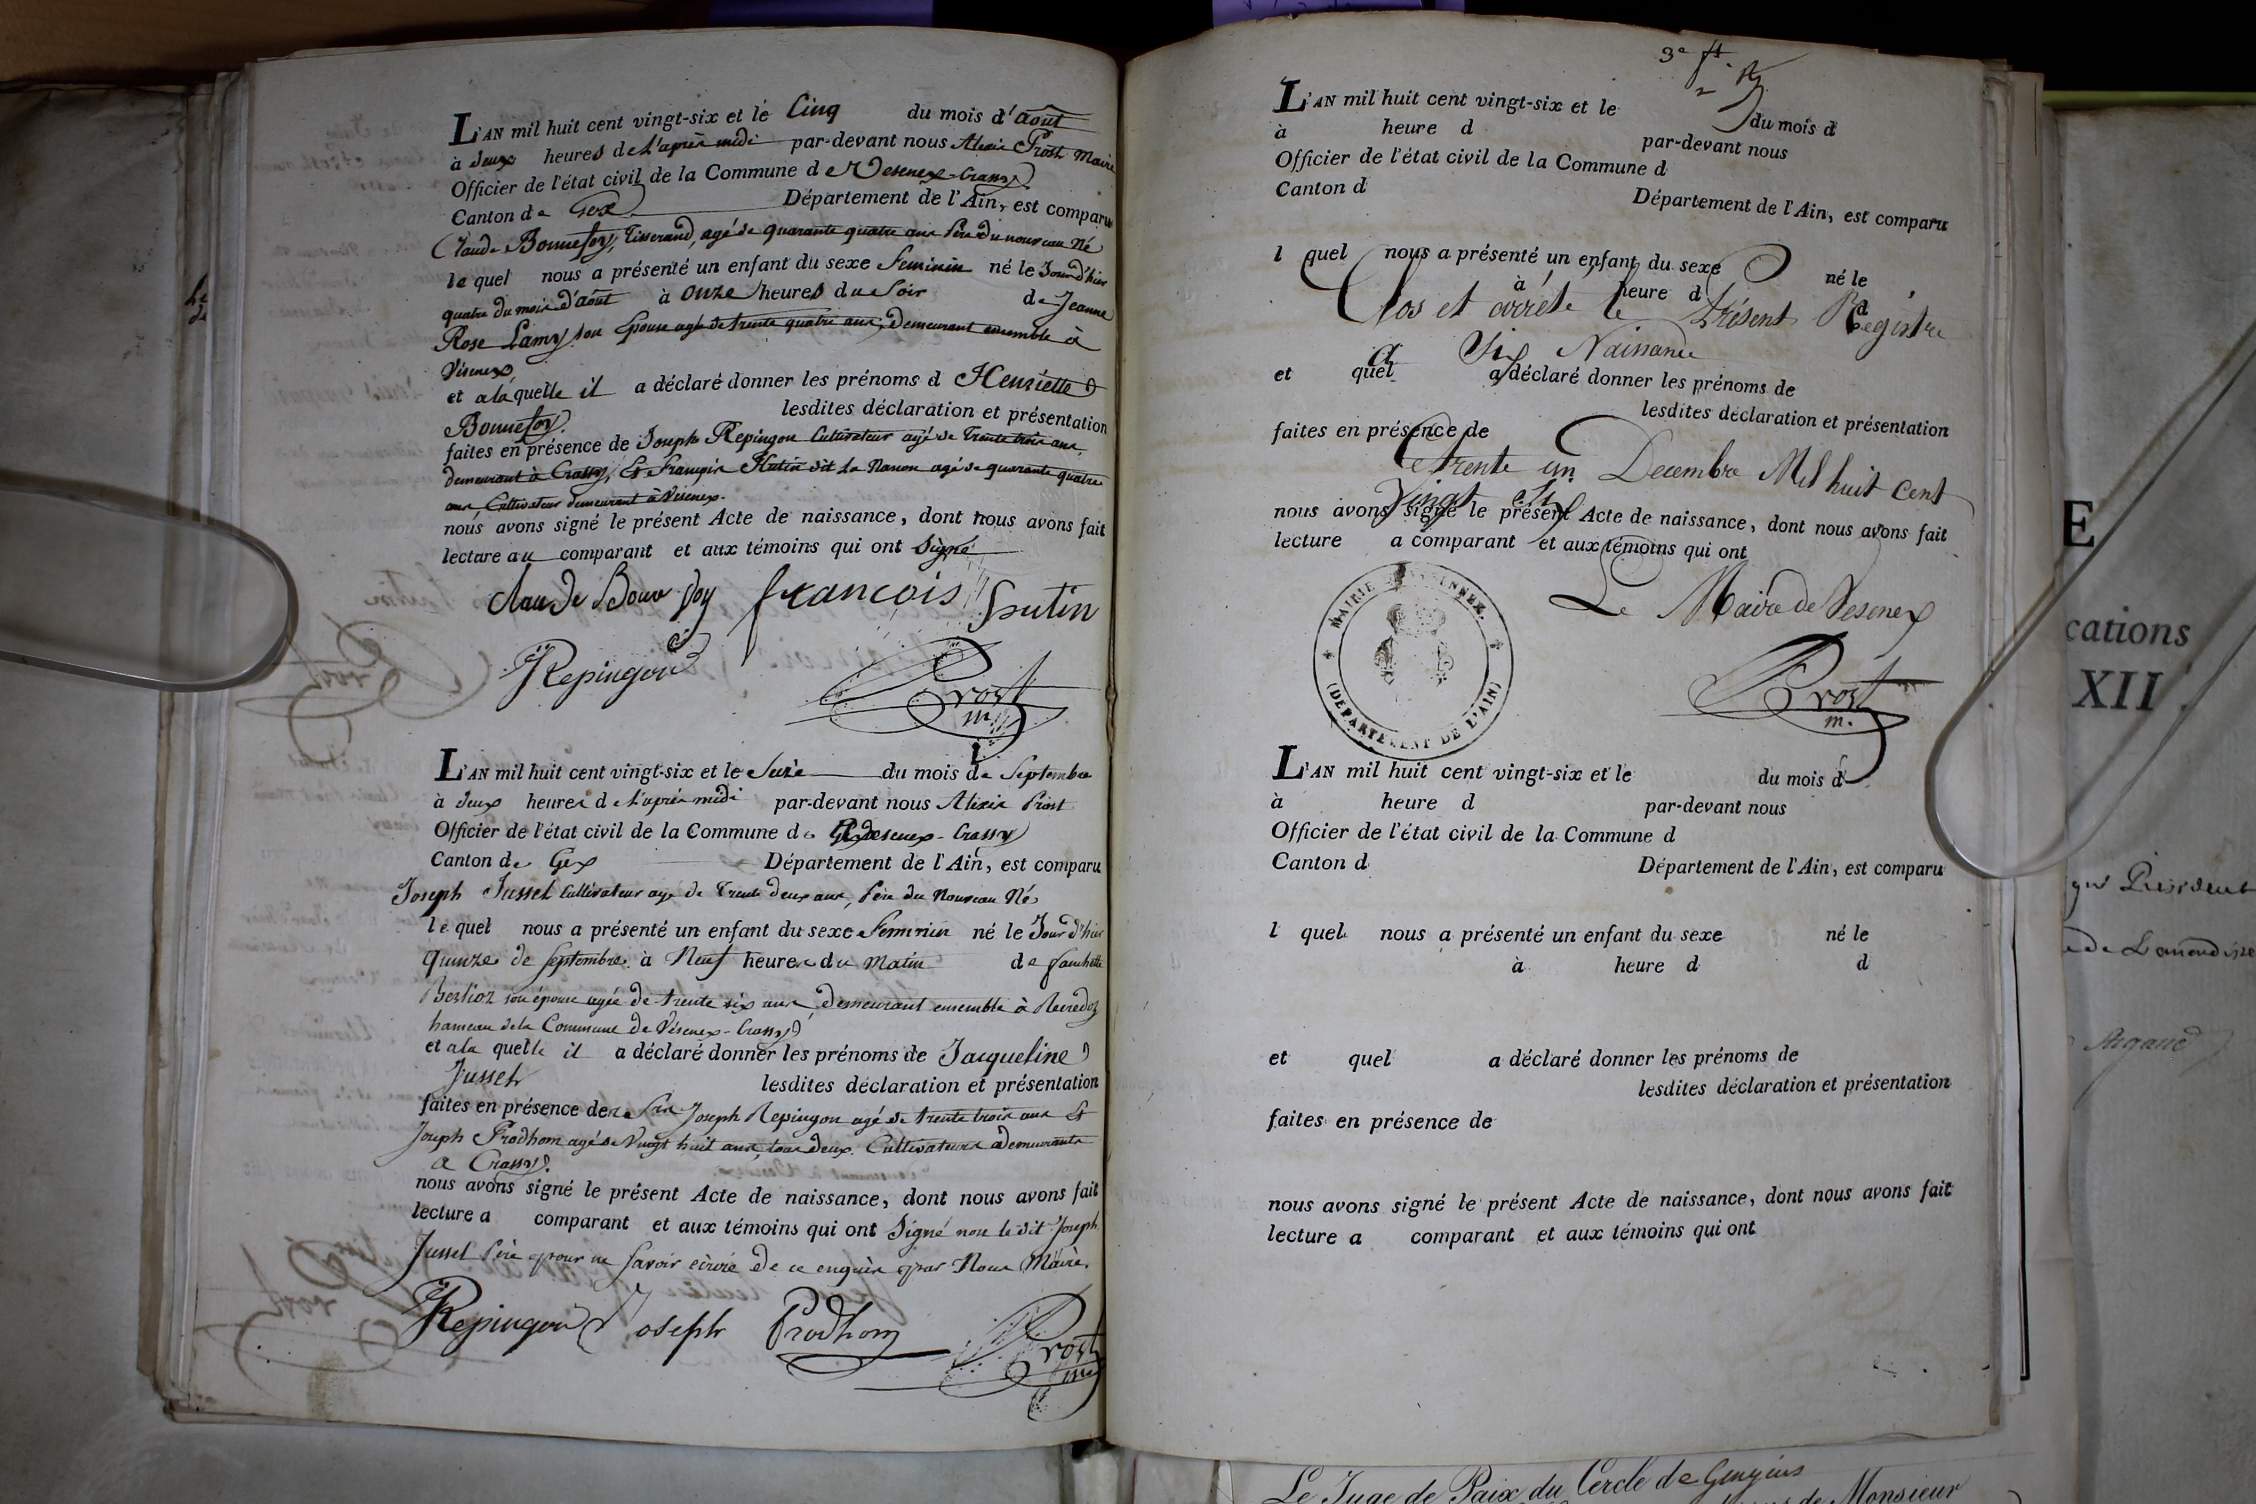 L'AN mil huit cent vingt-six et le Cinq du mois d'août
à deux heures de l'après midi par-devant nous Alexis Prost Maire
Officier de l'état civil de la Commune de Vesenex-Crassy
Canton de Gex Département de l'Ain, est comparu
Claude Bonnefoy, Tisserand, agé de quarante quatre ans Père du nouveau Né
le quel nous a présenté un enfant du sexe Feminin né le Jour d'hier
quatre du mois d'août à onze heures du Soir de Jeanne
Rose Lamy son Epouse agée de trente quatre ans, demeurant ensemble à
Vésenex
et a la quelle il a déclaré donner les prénoms d Henriette
Bonnefoy. lesdites déclaration et présentation
faites en présence de Joseph Repingon Cultivateur agé de Trente trois ans
demeurant à Crassy, Et François Hutin dit la Nanon agé de quarante quatre
ans, Cultivateur demeurant à Vésenex.
nous avons signé le présent Acte de naissance, dont nous avons fait
lecture au comparant et aux témoins qui ont Signé
Claude Bonnefoy françois hutin
JRepingon
Prost
m.
L'AN mil huit cent vingt-six et le Seize du mois de Septembre
à deux heures de l'après midi par-devant nous Alexis Prost
Officier de l'état civil de la Commune de Vesenex-Crassy
Canton de Gex Département de l'Ain, est comparu
Joseph Jusset Cultivateur agé de Trente deux ans, Père du Nouveau Né
le quel nous a présenté un enfant du sexe Feminin né le Jour d'hier
quinze de septembre à Neuf heures du Matin de fanchette
Berlioz son épouse agée de trente six ans demeurant ensemble à
hameau de la Commune de Vésenex-Crassy
et a la quelle il a déclaré donner les prénoms de Jacqueline
Jusset lesdites déclaration et présentation
faites en présence de Joseph Repingon agé de trente trois ans Et
Joseph Prodhom agé de Vingt huit ans, tous deux Cultivateurs demeurants
a Crassy.
nous avons signé le présent Acte de naissance, dont nous avons fait
lecture a comparant et aux témoins qui ont Signé non le dit Joseph
Jusset Père pour ne savoir écrire de ce enquis par Nous Maire.
JRepingon Joseph Prodhom
Prost
3e
L'AN mil huit cent vingt-six et le du mois d
à heure d par-devant nous
Officier de l'état civil de la Commune d
Canton d Département de l'Ain, est comparu
l quel nous a présenté un enfant du sexe né le
à heure d d
Clos et arrêté le présent Registre
a Six Naissance
et quel a déclaré donner les prénoms de
lesdites déclaration et présentation
faites en présence de
Ce trente un Decembre Mil huit Cent
Vingt Six
nous avons signé le présent Acte de naissance, dont nous avons fait
lecture a comparant et aux témoins qui ont
Le Maire de Vesenex
MAIRIE DE VESENNEX.
(DEPARTEMENT DE L'AIN)
Prost
m.
L'AN mil huit cent vingt-six et le du mois d
à heure d par-devant nous
Officier de l'état civil de la Commune d
Canton d Département de l'Ain, est comparu
l quel nous a présenté un enfant du sexe né le
à heure d d
et quel a déclaré donner les prénoms de
lesdites déclaration et présentation
faites en présence de
nous avons signé le présent Acte de naissance, dont nous avons fait
lecture a comparant et aux témoins qui ont
E
cations
XII
Président
Le Juge de Paix du Cercle de Gingins
de Monsieur